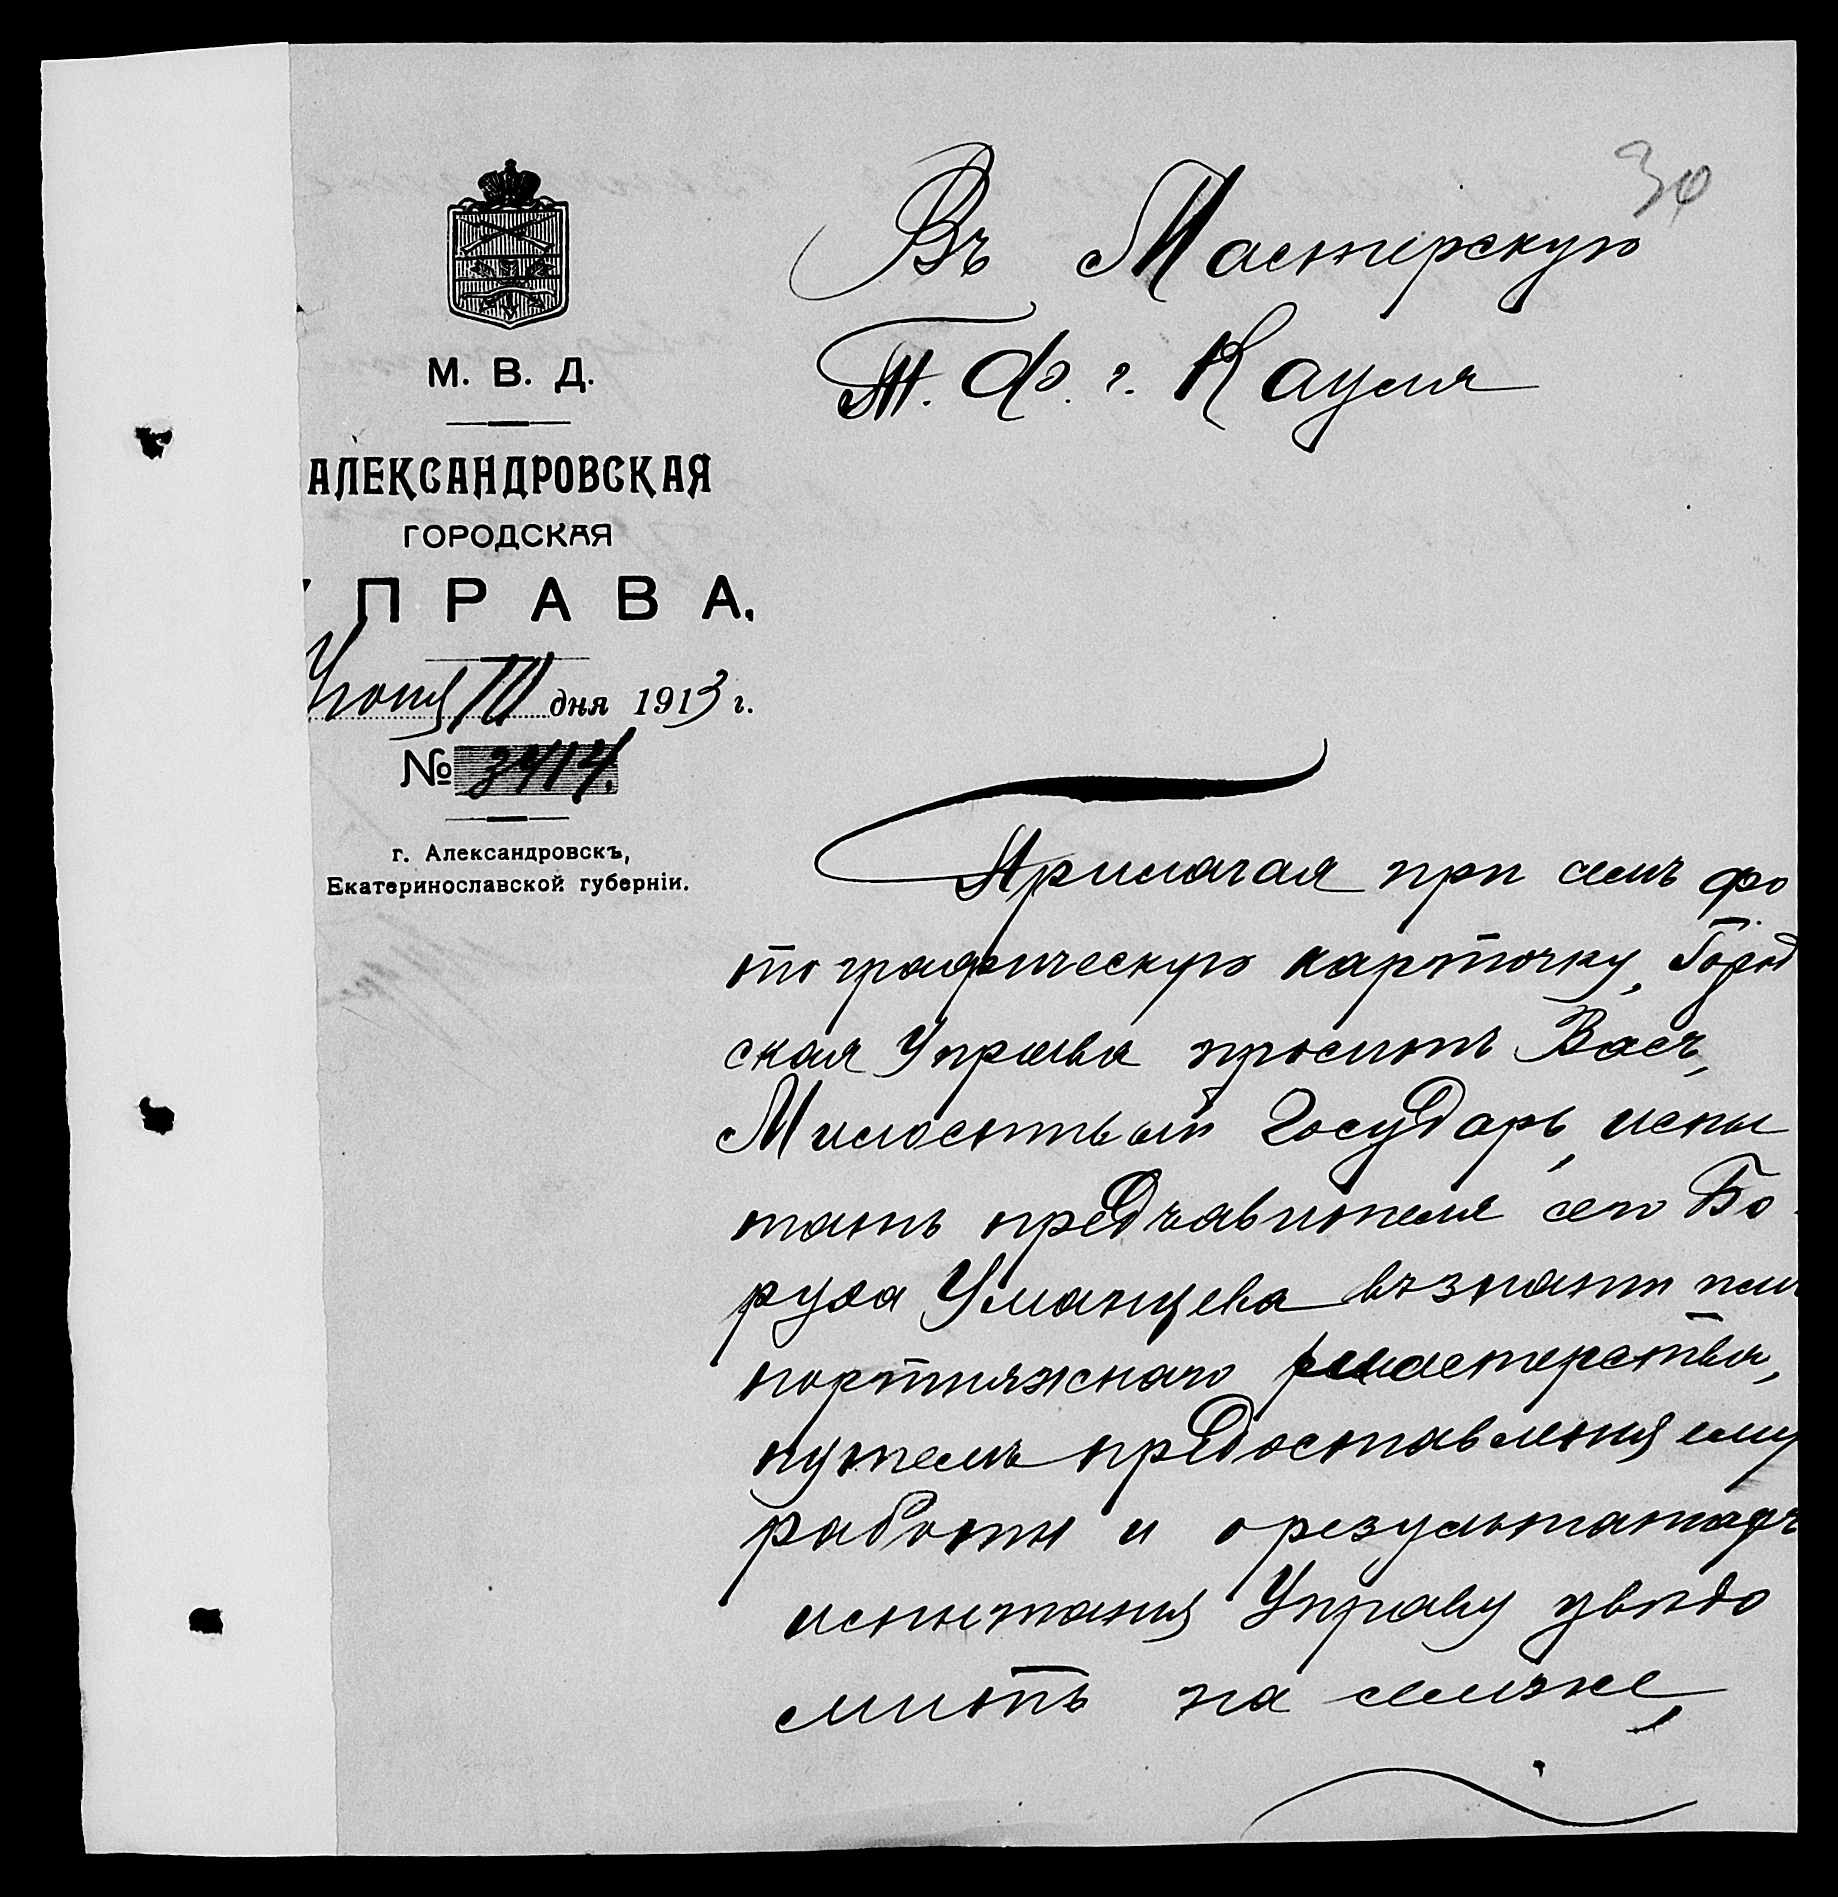 30
М. В. Д.
АЛЕКСАНДРОВСКАЯ
ГОРОДСКАЯ
УПРАВА.
Іюня 10 дня 1913 г.
№ 3414.
г. Александровскъ,
Екатеринославской губерніи.
Въ Мастерскую
Т. Ф. г. Кауля
Прилагая при семъ фо
тографическую карточку, Город
ская Управа проситъ Васъ,
Милостивый Государь, испы
тать предъявителя сего Бо-
руха Уманцева въ знаніи им
портняжнаго мастерства,
путемъ предоставленія ему
работы и о результатахъ
испытанія Управу увѣдо
мить на семъ же,